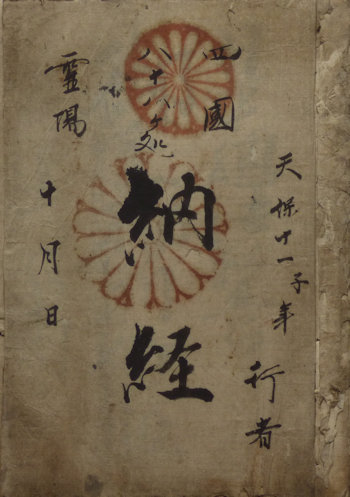 天保十一子年
行者
四國
八十八ヶ処
納経
靈場
十月日